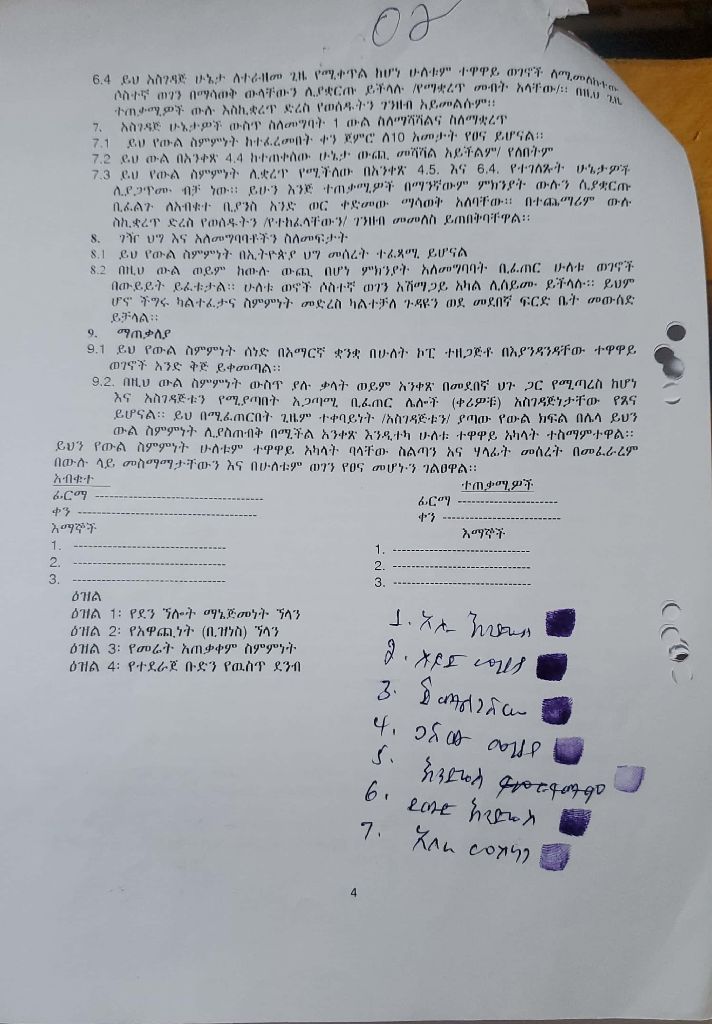 02
6.4 ይህ አስገዳጅ ሁኔታ ለተራዘመ ጊዜ የሚቀጥል ከሆነ ሁለቱም ተዋዋይ ወገኖች ለሚመለከተው
ሶስተኛ ወገን በማሳወቅ ውላቸውን ሊያቋርጡ ይችላሉ /የማቋረጥ መብት አላቸው/። በዚህ ጊዜ
ተጠቃሚዎች ውሉ እስኪቋረጥ ድረስ የወሰዱትን ገንዘብ አይመልሱም።
7. አስገዳጅ ሁኔታዎች ውስጥ ስለመግባት 1 ውል ስለማሻሻልና ስለማቋረጥ
7.1 ይህ የውል ስምምነት ከተፈረመበት ቀን ጀምሮ ለ10 አመታት የፀና ይሆናል።
7.2 ይህ ውል በአንቀጽ 4.4 ከተጠቀሰው ሁኔታ ውጪ መሻሻል አይችልም/ የለበትም
7.3 ይህ የውል ስምምነት ሊቋረጥ የሚችለው በአንቀጽ 4.5. እና 6.4. የተገለጹት ሁኔታዎች
ሲያጋጥሙ ብቻ ነው። ይሁን እንጅ ተጠቃሚዎች በማንኛውም ምክንያት ውሉን ሲያቋርጡ
ቢፈልጉ ለአብቁተ ቢያንስ አንድ ወር ቀድመው ማሳወቅ አለባቸው። በተጨማሪም ውሉ
ስኪቋረጥ ድረስ የወሰዱትን /የተከፈላቸውን/ ገንዘብ መመለስ ይጠበቅባቸዋል።
8. ገዥ ህግ እና አለመግባባቶችን ስለመፍታት
8.1 ይህ የውል ስምምነት በኢትዮጵያ ህግ መሰረት ተፈጻሚ ይሆናል
8.2 በዚህ ውል ወይም ከውሉ ውጪ በሆነ ምክንያት አለመግባባት ቢፈጠር ሁለቱ ወገኖች
በውይይት ይፈቱታል። ሁለቱ ወኖች ሶስተኛ ወገን አሸማጋይ አካል ሊሰይሙ ይችላሉ። ይህም
ሆኖ ችግሩ ካልተፈታና ስምምነት መድረስ ካልተቻለ ጉዳዩን ወደ መደበኛ ፍርድ ቤት መውሰድ
ይቻላል።
9. ማጠቃለያ
9.1 ይህ የውል ስምምነት ሰነድ በአማርኛ ቋንቋ በሁለት ኮፒ ተዘጋጅቶ በእያንዳንዳቸው ተዋዋይ
ወገኖች አንድ ቅጅ ይቀመጣል።
9.2. በዚህ ውል ስምምነት ውስጥ ያሉ ቃላት ወይም አንቀጽ በመደበኛ ህጉ ጋር የሚጣረስ ከሆነ
እና አስገዳጅቱን የሚያጣበት አጋጣሚ ቢፈጠር ሌሎች (ቀሪዎቹ) አስገዳጅነታቸው የጸና
ይሆናል። ይህ በሚፈጠርበት ጊዜም ተቀባይነት /አስገዳጅቱን/ ያጣው የውል ክፍል በሌላ ይህን
ውል ስምምነት ሊያስጠብቅ በሚችል አንቀጽ እንዲተካ ሁለቱ ተዋዋይ አካላት ተስማምተዋል።
ይህን የውል ስምምነት ሁለቱም ተዋዋይ አካላት ባላቸው ስልጣን እና ሃላፊት መሰረት በመፈራረም
በውሉ ላይ መስማማታቸውን እና በሁለቱም ወገን የፀና መሆኑን ገልፀዋል።
አብቁተ
ፊርማ ------------------------------
ቀን --------------------------------
እማኞች
1. ---------------------------
2. ---------------------------
3. ---------------------------
ተጠቃሚዎች
ፊርማ ------------------
ቀን ---------------------
እማኞች
1. -------------------------
2. -------------------------
3. -------------------------
ዕዝል
ዕዝል 1፡ የደን ኘሎት ማኔጅመነት ኘላን
ዕዝል 2፡ የአዋጪነት (ቢዝነስ) ኘላን
ዕዝል 3፡ የመሬት አጠቃቀም ስምምነት
ዕዝል 4፡ የተደራጀ ቡድን የዉስጥ ደንብ
1.
2.
3.
4.
5.
6.
7.
4